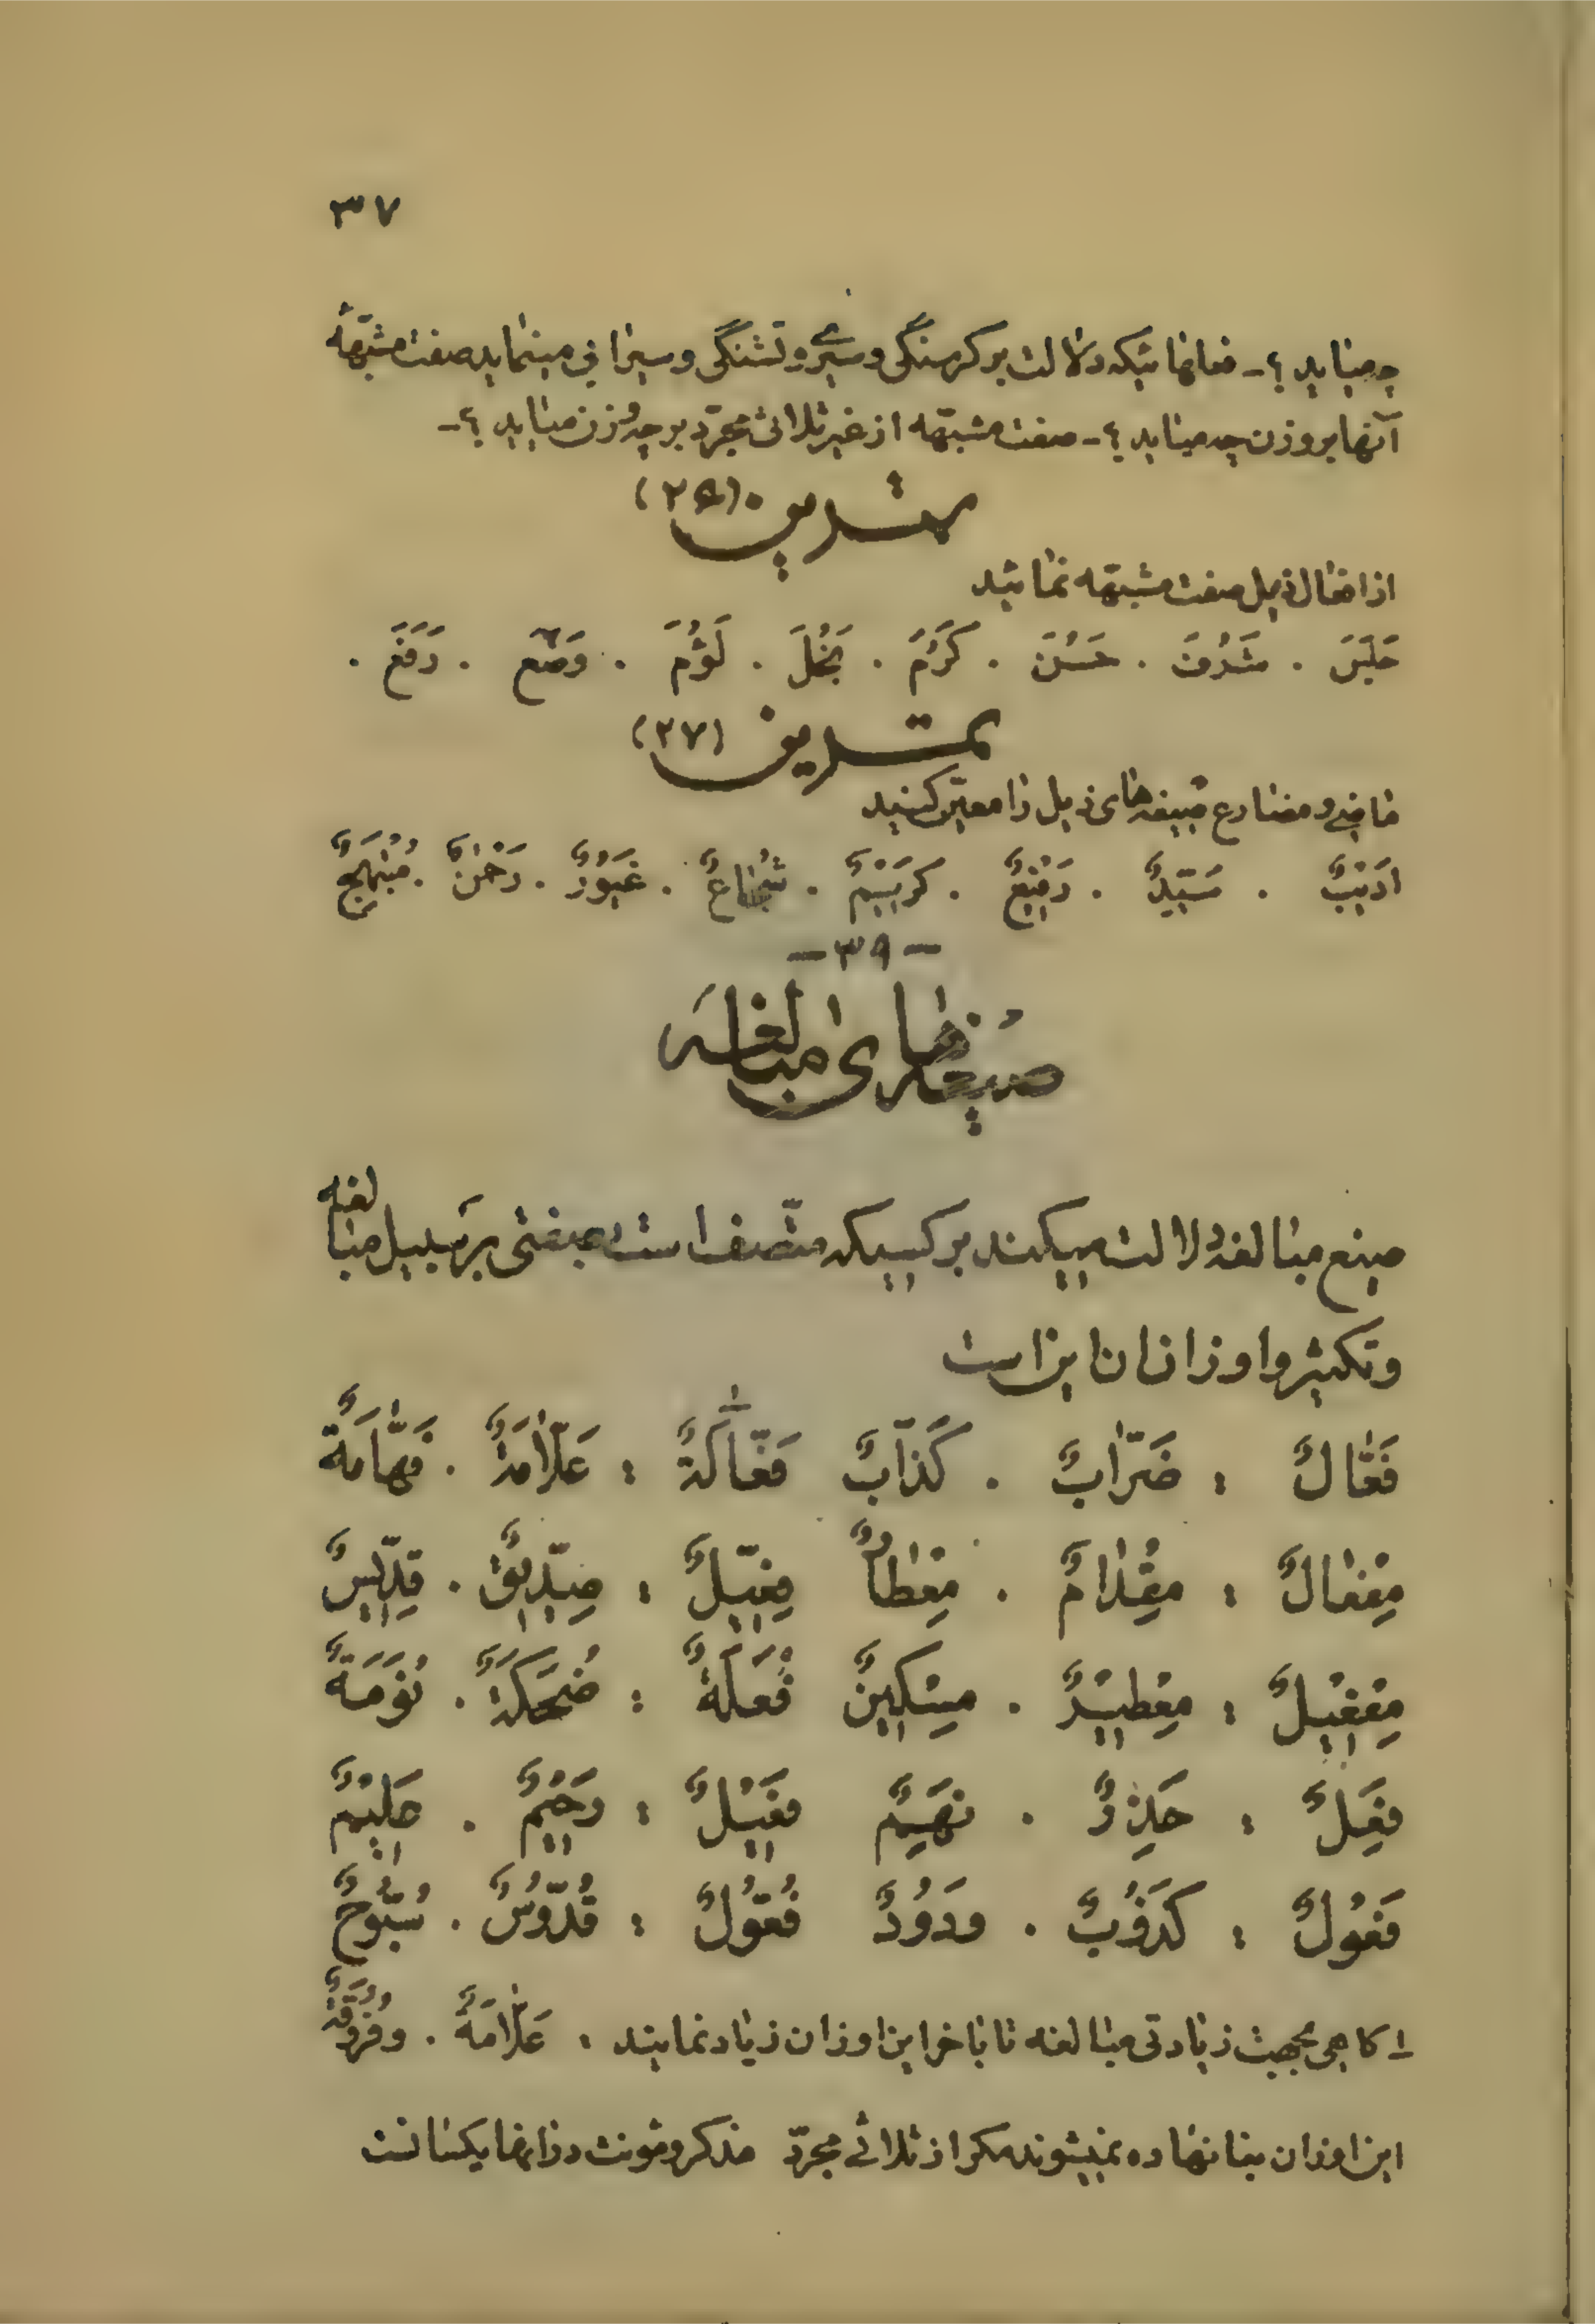 ٣٧
چه میاید ؟ ـ فعلهائیکه دلالت بر گرسنگی و سیری و تشنگی و سیرابی مینماید صفت مشبّهۀ
آنها بر وزن چه میاید ؟ ـ صفت مشبّهه از غیر ثلاثی مجرّد بر چه وزن میاید ؟ ـ
تمرین (٢٦)
از افعال ذیل صفت مشبّهه نمائید
جَلَسَ . شَرُفَ . حَسُنَ . كَرُمَ . بَخُلَ . لَؤُمَ . وَضُع . رَفَعَ .
تمرین (٢٧)
ماضی و مضارع صیغه‌های ذیل را معیّن کنید
اَدیْبٌ . سَیّدٌ . رَفیْعٌ . كَریْمٌ . شُجاعٌ . غَیُوْرٌ . رَحْمٰنٌ . مُبْتَهِجٌ
ـ ٣٩ ـ
صیغه‌های مبالغه
صیغ مبالغه دلالت میکند بر کسیکه متّصف است بصفتی بر سبیل مبالغه
و تکثیر و اوزان ان این است
فَعّالٌ : ضَرّابٌ . كَذّابٌ فَعّالَةٌ : عَلّامَةٌ . فَهّامَةٌ
مِفْعالٌ : مِقْدامٌ . مِعْطاءٌ فِعّیلٌ : صِدّیْقٌ . قِدّیسٌ
مِفْعِیْلٌ : مِعْطِیْرٌ . مِسْكِیْنٌ فُعَلَةٌ : ضُحَكَةٌ . نُوَمَةٌ
فَعِلٌ : حَذِرٌ . نَهِمٌ فَعِیْلٌ : رَحِیْمٌ . حَلِیْمٌ
فَعُولٌ : كَذُوْبٌ . وَدُوْدٌ فُعّوْلٌ : قُدّوْسٌ . سُبّوْحٌ
١ـ گاهی بجهت زیادتی مبالغه تا باخر این اوزان زیاد نمایند : عَلّامَةٌ . و فَرُوقَةٌ
این اوزان بنا نهاده نمیشوند مگر از ثلاثی مجرّد مذکر و مؤنث در انها یکسانست